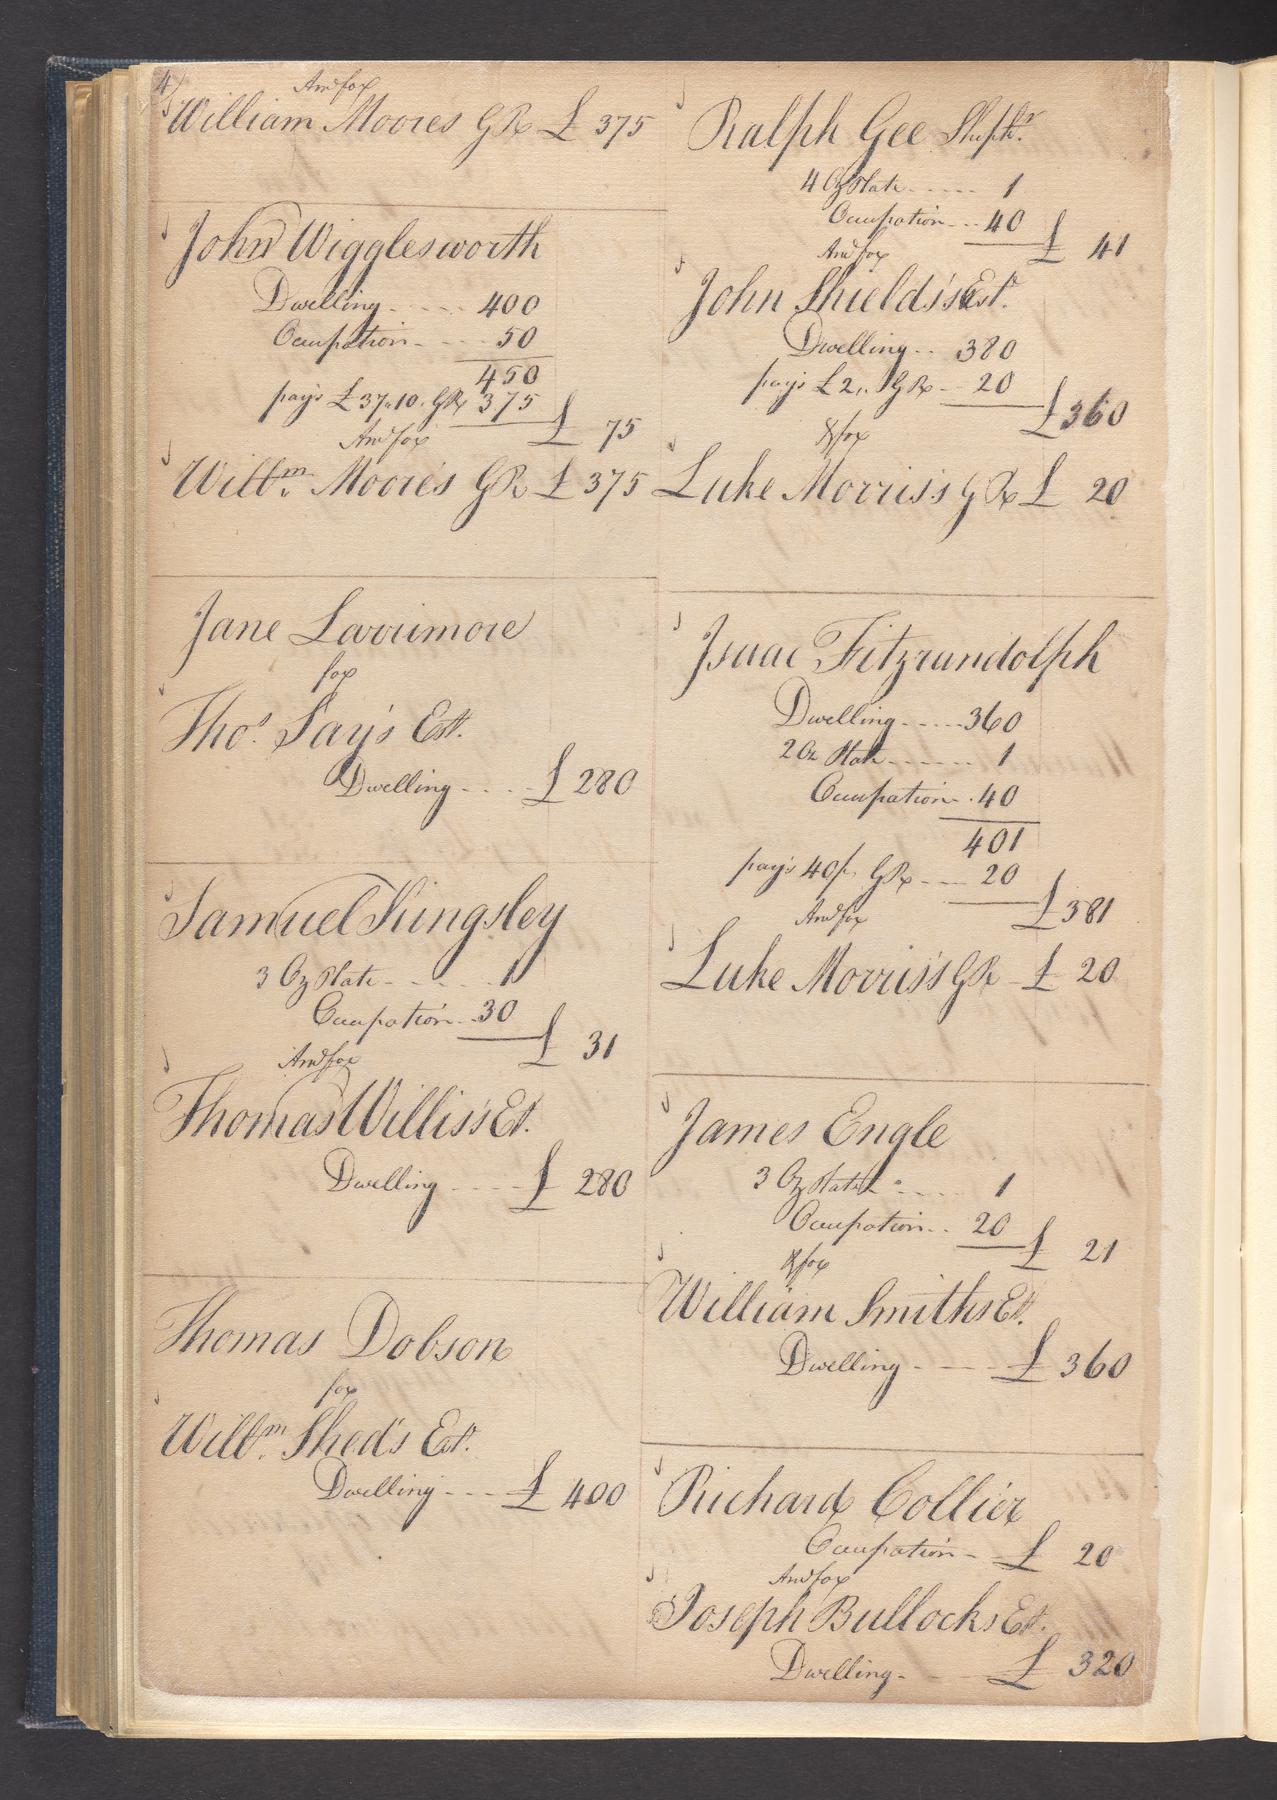 4
And for
William Moores GR £ 375
John Wigglesworth
Dwelling 400
Occupation 50
450
pays £37..10. GR 375
£ 75
And for
Willm. Moore's GR £ 375
Jane Larrimore
for
Thos. Say's Est.
Dwelling £ 280
Samuel Kingsley
3 Oz Plate 1
Occupation 30
£ 31
And for
Thomas Willis's Est.
Dwelling £ 280
Thomas Dobson
for
Willm. Shed's Est.
Dwelling £ 400
Ralph Gee
4 Oz Plate 1
Occupation 40
£ 41
And for
John Shields's Est.
Dwelling 380
pays £2.. GR 20
£ 360
& for
Luke Morris's GR £ 20
Isaac Fitzrandolph
Dwelling 360
2 Oz Plate 1
Occupation 40
401
pays 40/. GR 20
£ 381
And for
Luke Morris's GR £ 20
James Engle
3 Oz Plate 1
Occupation 20
£ 21
& for
William Smiths Est.
Dwelling £ 360
Richard Collier
Occupation £ 20
And for
Joseph Bullocks Est.
Dwelling £ 320